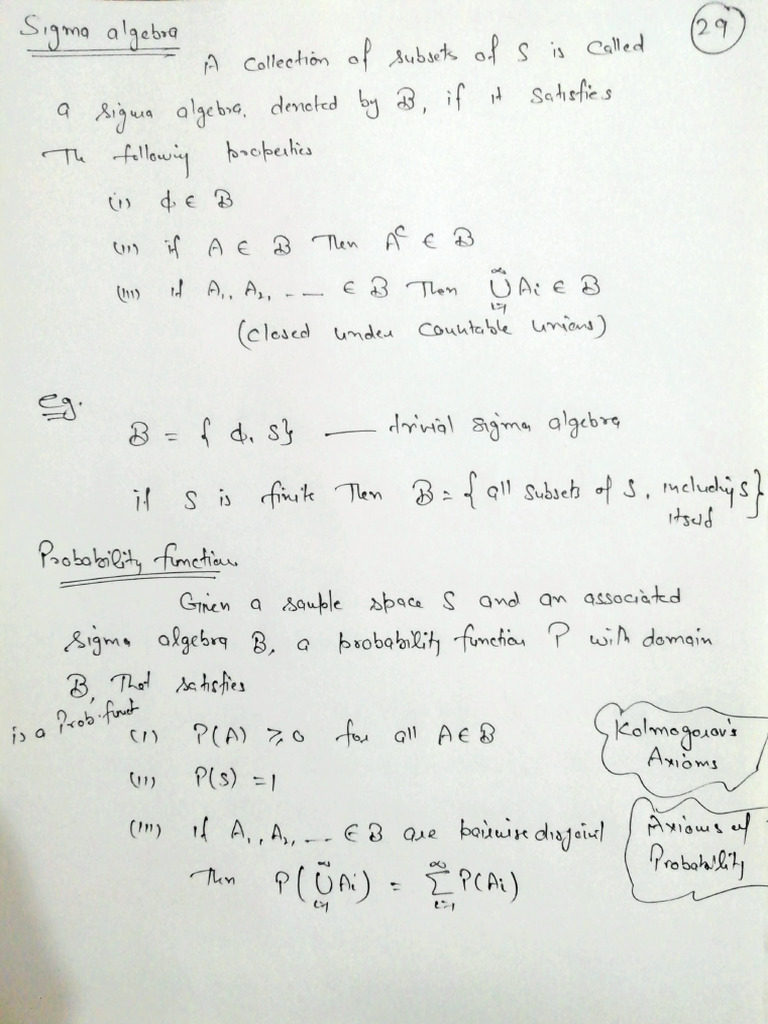 29
Sigma algebra
A collection of subsets of S is called
a sigma algebra, denoted by B, if it satisfies
The following properties
(i) ϕ ∈ B
(ii) if A ∈ B Then Aᶜ ∈ B
(iii) if A₁, A₂, ---- ∈ B Then ∞⋃i=1 Ai ∈ B
(closed under countable unions)
eg.
B = { ϕ, S} —— trivial sigma algebra
if S is finite Then B = { all subsets of S, including S}
itself
Probability function
Given a sample space S and an associated
sigma algebra B, a probability function P with domain
B, That satisfies
is a Prob. funct
(i) P(A) ≥ 0 for all A ∈ B
Kolmogorov's
Axioms
(ii) P(S) = 1
(iii) if A₁, A₂, --- ∈ B are pairwise disjoint
Axioms of
Probability
Then P(∞⋃i=1 Ai) = ∞∑i=1 P(Ai)